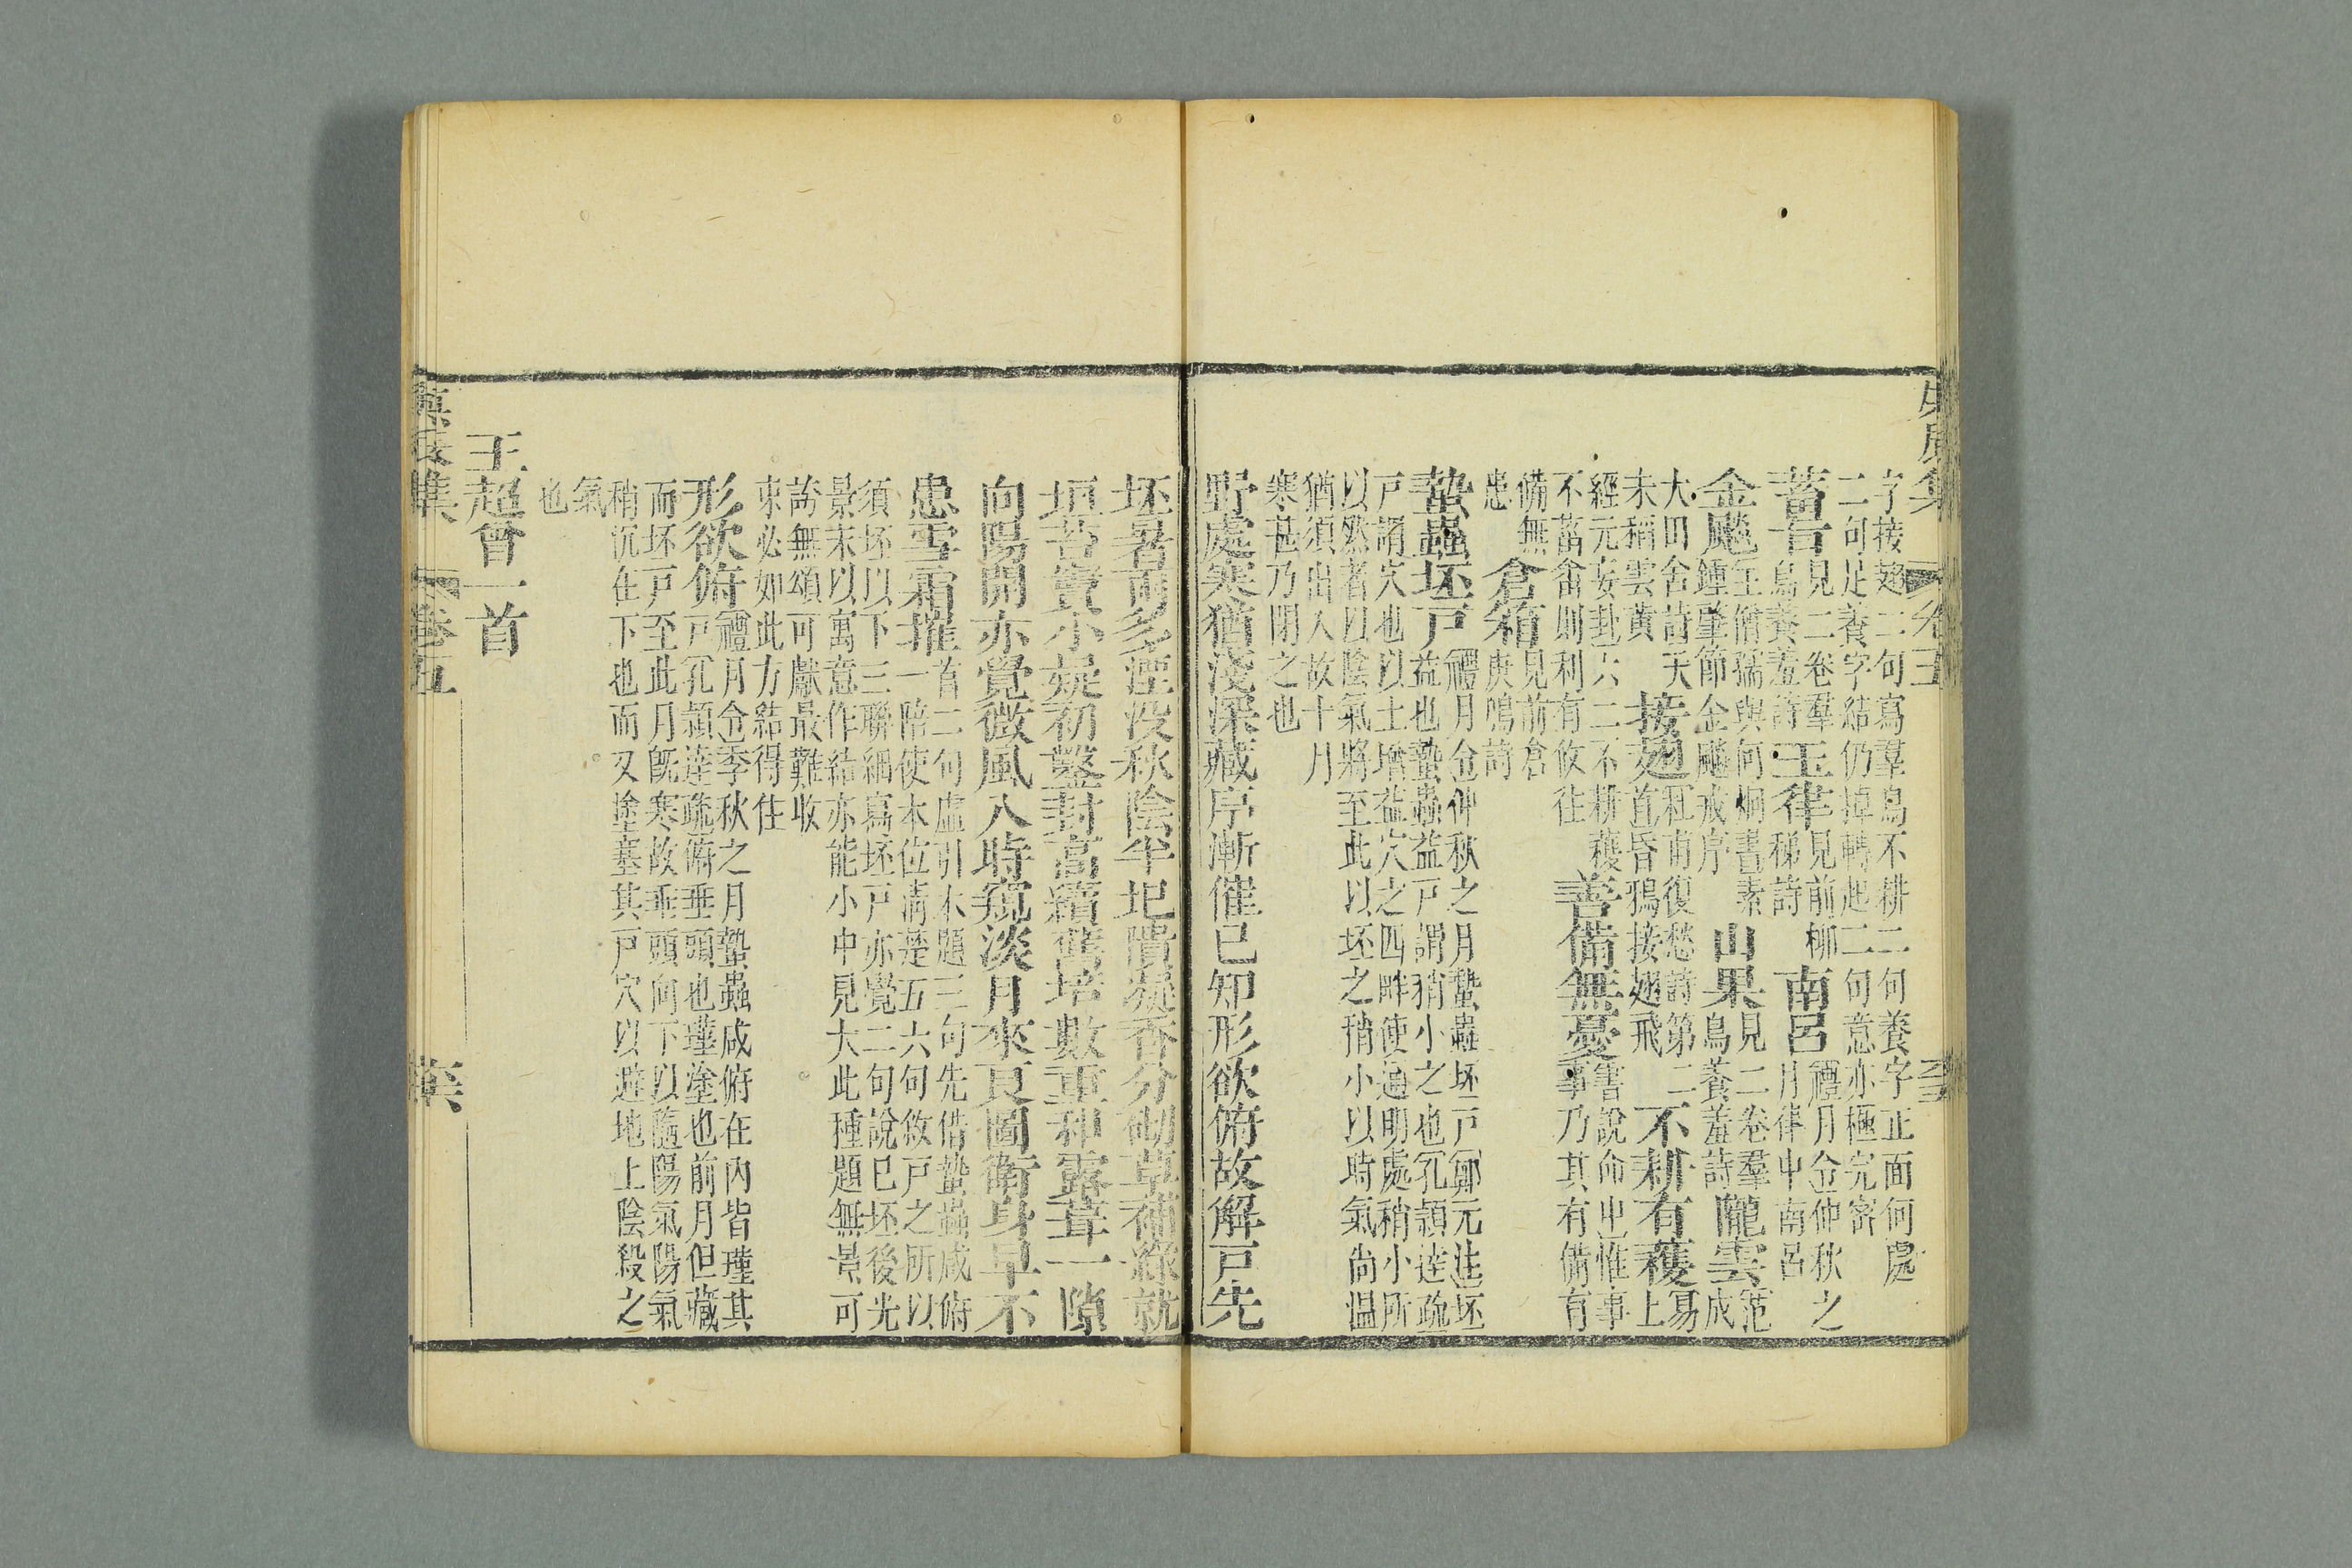 字接翅二句寫羣鳥不耕二句養字正面何處
二句足養字結仍掉轉起二句意亦極完密
蓄旨見二卷羣鳥養羞詩 玉律見前柳稊詩 南呂禮月令仲秋之月律中南呂
金飈王脩孺與何炯書素鍾肇節金飈戒序 山果見二卷羣鳥養羞詩 隴雲范成
大田舍詩天未稻雲黃 接翅杜甫復愁詩第二首昏鴉接翅飛 不耕有穫易上
經元妄卦六二不耕穫不菑畬則利有攸往 善備無憂書說命中惟事事乃其有備有
備無患 倉箱見前倉庚鳴詩
蟄蟲坯戶禮月令仲秋之月蟄蟲坯戶鄭元注坯益也蟄蟲益戶謂稍小之也孔穎達疏
戶謂穴也以土增益穴之四畔使通明處稍小所
以然者以陰氣將至此以坯之稍小以時氣尚溫
猶須出入故十月
寒甚乃閉之也
野處寒猶淺深藏序漸催已知形欲俯故解戶先
坯暑雨多湮沒秋陰半圮隤凝香分砌草補綠就
垣苔竇小疑初鑿封高續舊培數重和露葺一隙
向陽開亦覺微風入時窺淡月來艮圖衛身早不
患雪霜摧首二句虛引本題三句先借蟄蟲咸俯一陪使本位清楚五六句敘戶之所以
須坯以下三聯細寫坯戶亦覺二句說已坯後光
景末以寓意作結亦能小中見大此種題無景可
誇無頌可獻最難收
束必如此方結得住
形欲俯禮月令季秋之月蟄蟲咸俯在內皆墐其戶孔穎達疏俯垂頭也墐塗也前月但藏
而坯戶至此月旣寒故垂頭向下以隨陽氣陽氣
稍沉在下也而又塗塞其戶穴以避地上陰殺之
氣
也
王超曾一首
卷五